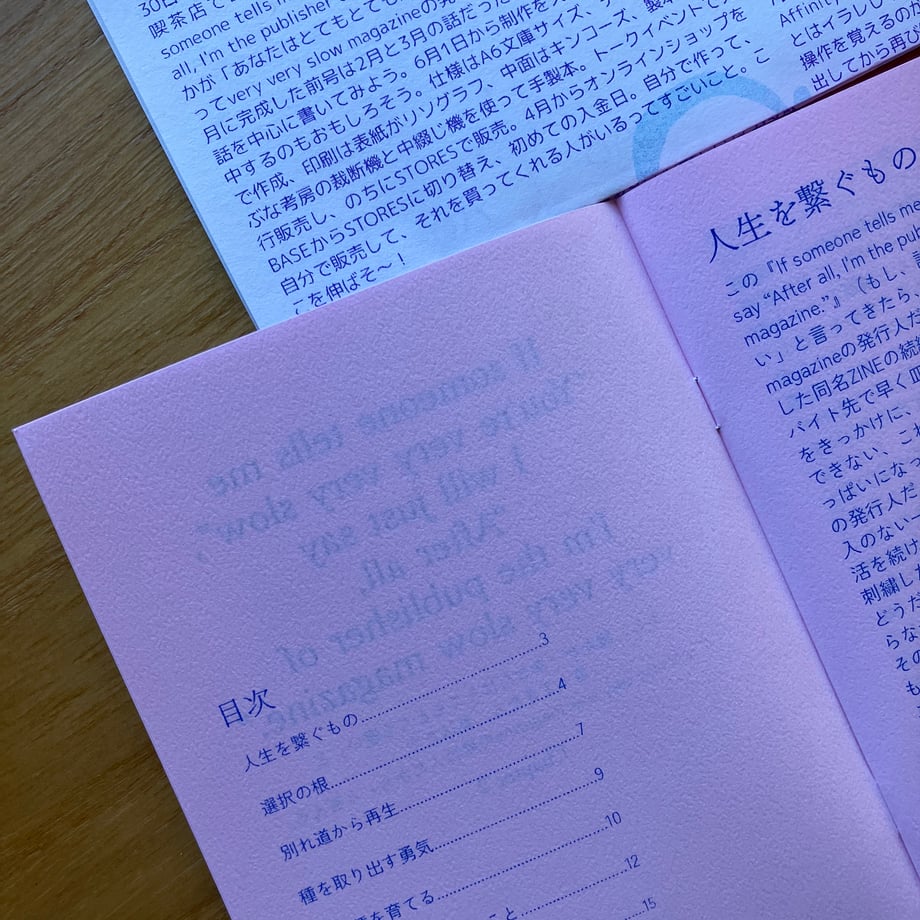 30日
喫茶店で
someone tells
all, I'm the publisher
かが「あなたはとてもとても
ってvery very slow magazineの発
月に完成した前号は2月と3月の話だった
話を中心に書いてみよう。6月1日から制作を
中するのもおもしろそう。仕様はA6文庫サイズ、
で作成、印刷は表紙がリソグラフ、中面はキンコーズ、製本
ぶな考房の裁断機と中綴じ機を使って手製本。トークイベントで
行販売し、のちにSTORESで販売。4月からオンラインショップを
BASEからSTORESに切り替え、初めての入金日。自分で作って、
自分で販売して、それを買ってくれる人がいるってすごいこと。こ
こを伸ばそ〜！
Affinity
とはイラレし
操作を覚えるのが
出してから再び
If someone tells me
"You're very very slow",
I will just say
"After all,
I'm the publisher of
very very slow magazine."
目次
人生を繋ぐもの 3
選択の根 4
別れ道から再生 7
種を取り出す勇気 9
を育てる 10
こと 12
15
人生を繋ぐもの
この『If someone tells me
say "After all, I'm the pub
magazine."』（もし、
い」と言ってきたら、
magazineの発行人だ
した同名ZINEの続
バイト先で早く
をきっかけに、
できない、これ
っぱいになっ
の発行人だ
入のない一
活を続け
刺繍し
どうだ
らな
その
も